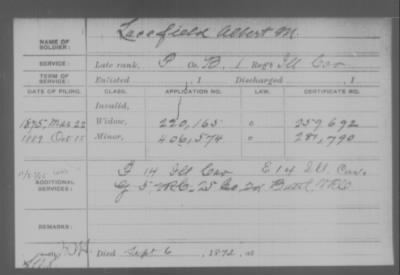 NAME OF SOLDIER: Lacefield Albert M.
SERVICE: Late rank, P Co. B, 1 Reg't Ill Cav
TERM OF SERVICE: Enlisted , 1 Discharged , 1
DATE OF FILING. CLASS. APPLICATION NO. LAW. CERTIFICATE NO.
Invalid,
1875, Mar 22 Widow, 220,165 " 259,692
1889 Oct 15 Minor, 406,574 " 281,790
ADDITIONAL SERVICES: G 14 Ill Cav E 14 Ill. Cav.
G 5, V.R.C. 25 Co. 2d Batt. V.R.C.
REMARKS:
Died Sept 6, 1872, at